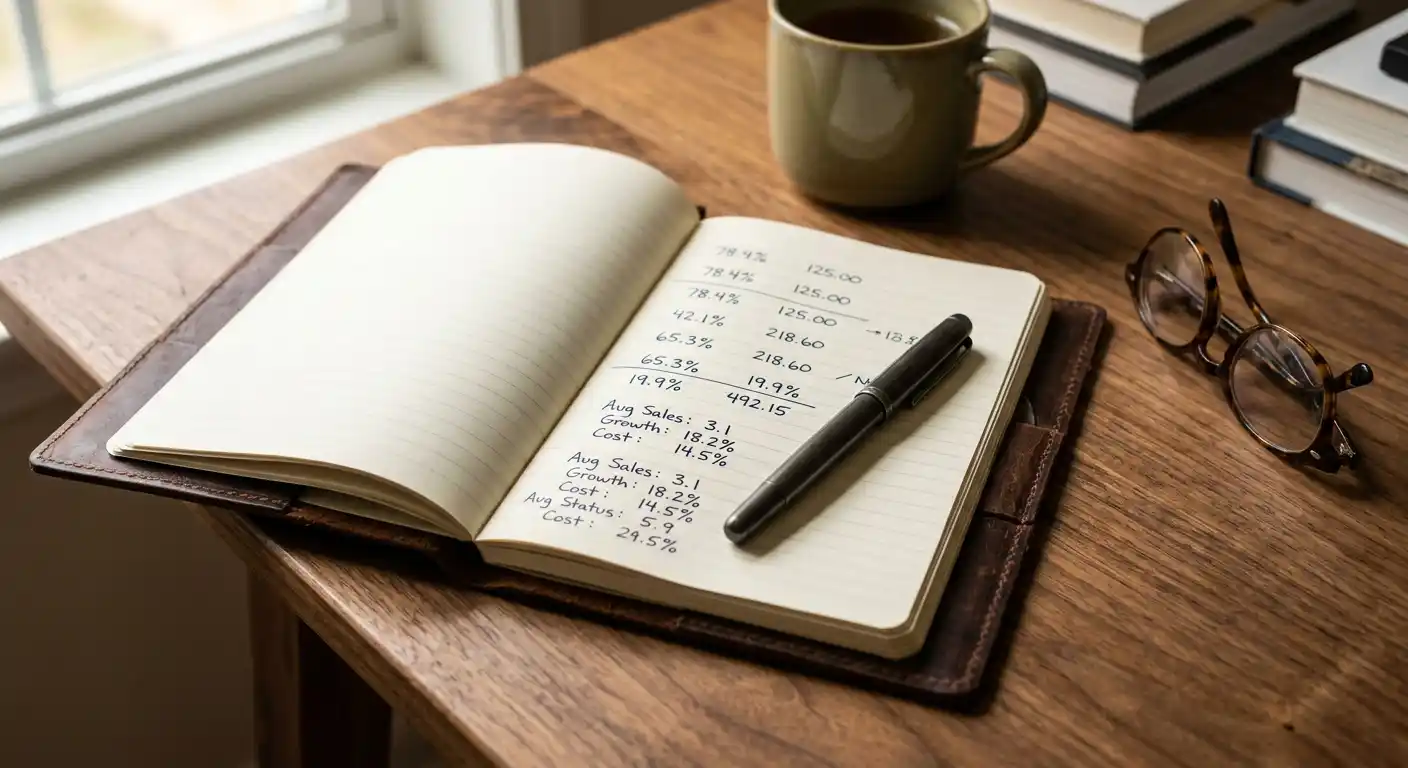 78.4% 125.00
78.4% 125.00
78.4% 125.00
42.1% 218.60
65.3% 218.60
65.3% 19.9%
19.9% 492.15
Aug Sales: 3.1
Growth: 18.2%
Cost: 14.5%
Aug Sales: 3.1
Growth: 18.2%
Cost: 14.5%
Aug Status: 5.9
Cost: 29.5%